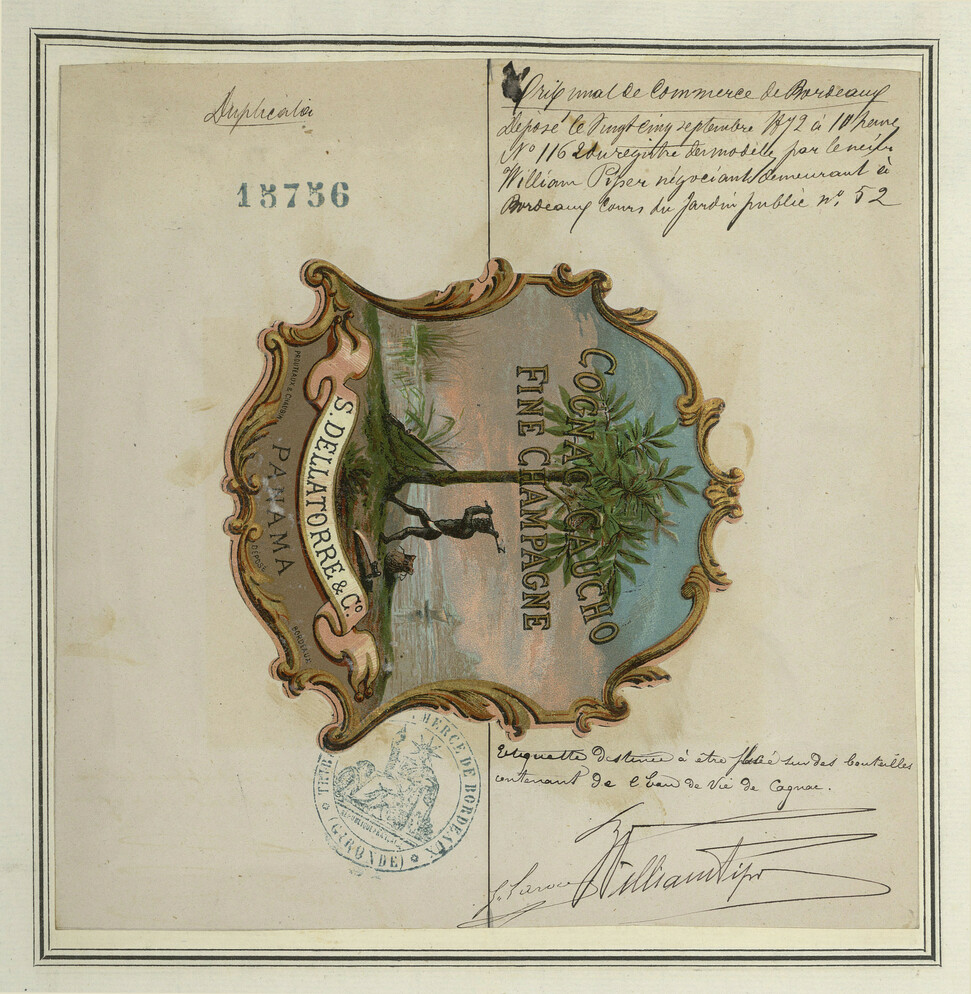 Duplicata
15756
Tribunal de Commerce de Bordeaux
Déposé le Vingt cinq septembre 1872 à 10 heures
No 1162 du registre des modèles par
William Piper négociant demeurant à
Bordeaux Cours du Jardin public no. 52
COGNAC GAUCHO
FINE CHAMPAGNE
S. DELLATORRE & Co.
PANAMA
DÉPOSÉ
BORDEAUX
Etiquette destinée à être sur des bouteilles
contenant de l'Eau de Vie de Cognac.
William Piper
TRIB MERCE DE BORDEAUX
(GIRONDE)